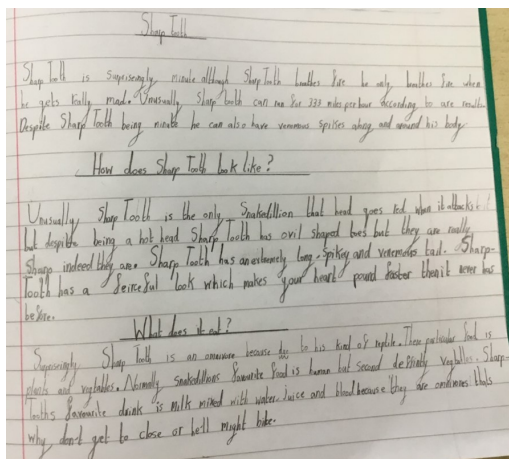 Sharp Tooth
Sharp Tooth is Surpriseingly minute although Sharp Tooth breathes fire he only breathes fire when
he gets really mad. Unusually Sharp tooth can run for 333 miles per hour according to are
Despite Sharp Tooth being minute he can also have venemous spikes along and around his body
How does Sharp Tooth look like?
Unusually, Sharp Tooth is the only Snakedillion that head goes red when it attacks
but despite being a hot head Sharp Tooth has ovil shaped but they are really
Sharp indeed they are. Sharp Tooth has an extremely long, spikey and venemous tail. Sharp-
Tooth has a feirceful look which makes your heart pound faster then it never has
before.
What does it eat?
Surpriseingly Sharp Tooth is an omnivore because to his kind of reptile. There particular food is
plants and vegtables. Normally snakedillions favourite food is human but second vegtables. Sharp-
Tooths favourite drink is milk mixed with water juice and blood because they are omnivores thats
why don't get to close or he'll might bite.